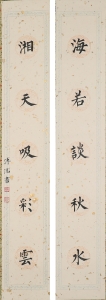 海若談秋水
湘天吸彩雲